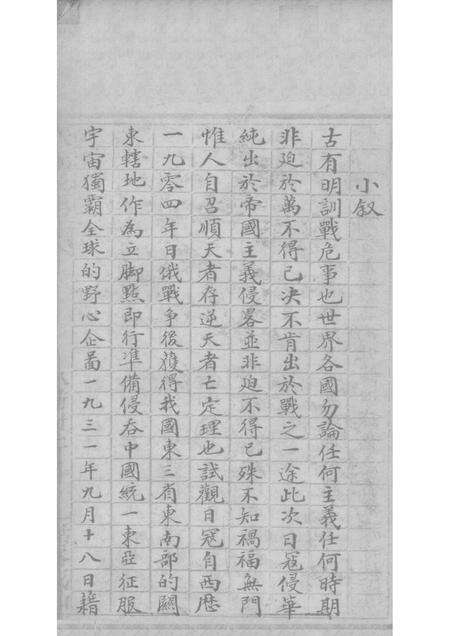 小叙
古有明訓戰危事也世界各國勿論任何主義任何時期
非迫於萬不得已决不肯出於戰之一途此次日寇侵華
純出於帝國主義侵畧並非迫不得已殊不知禍福無門
惟人自召順天者存逆天者亡定理也試觀日寇自西歷
一九零四年日俄戰爭後獲得我國東三省東南部的關
東轄地作為立脚點即行凖備侵吞中國統一東亞征服
宇宙獨霸全球的野心企啚一九三一年九月十八日籍